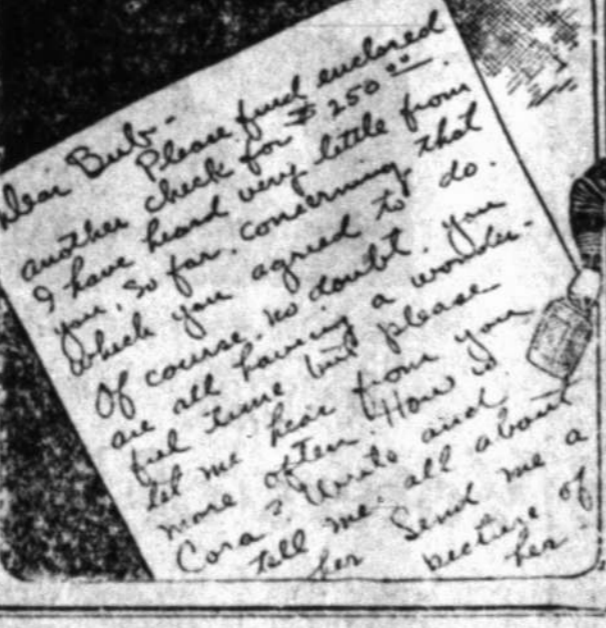 Dear Bub-
Please find enclosed
another check for $250.00.
I have heard very little from
you, so far, concerning that
which you agreed to do.
Of course, no doubt, you
are all having a wonder-
ful time but please
let me hear from you
more often. How is
Cora? Write and
tell me all about
her Send me a
picture of
her